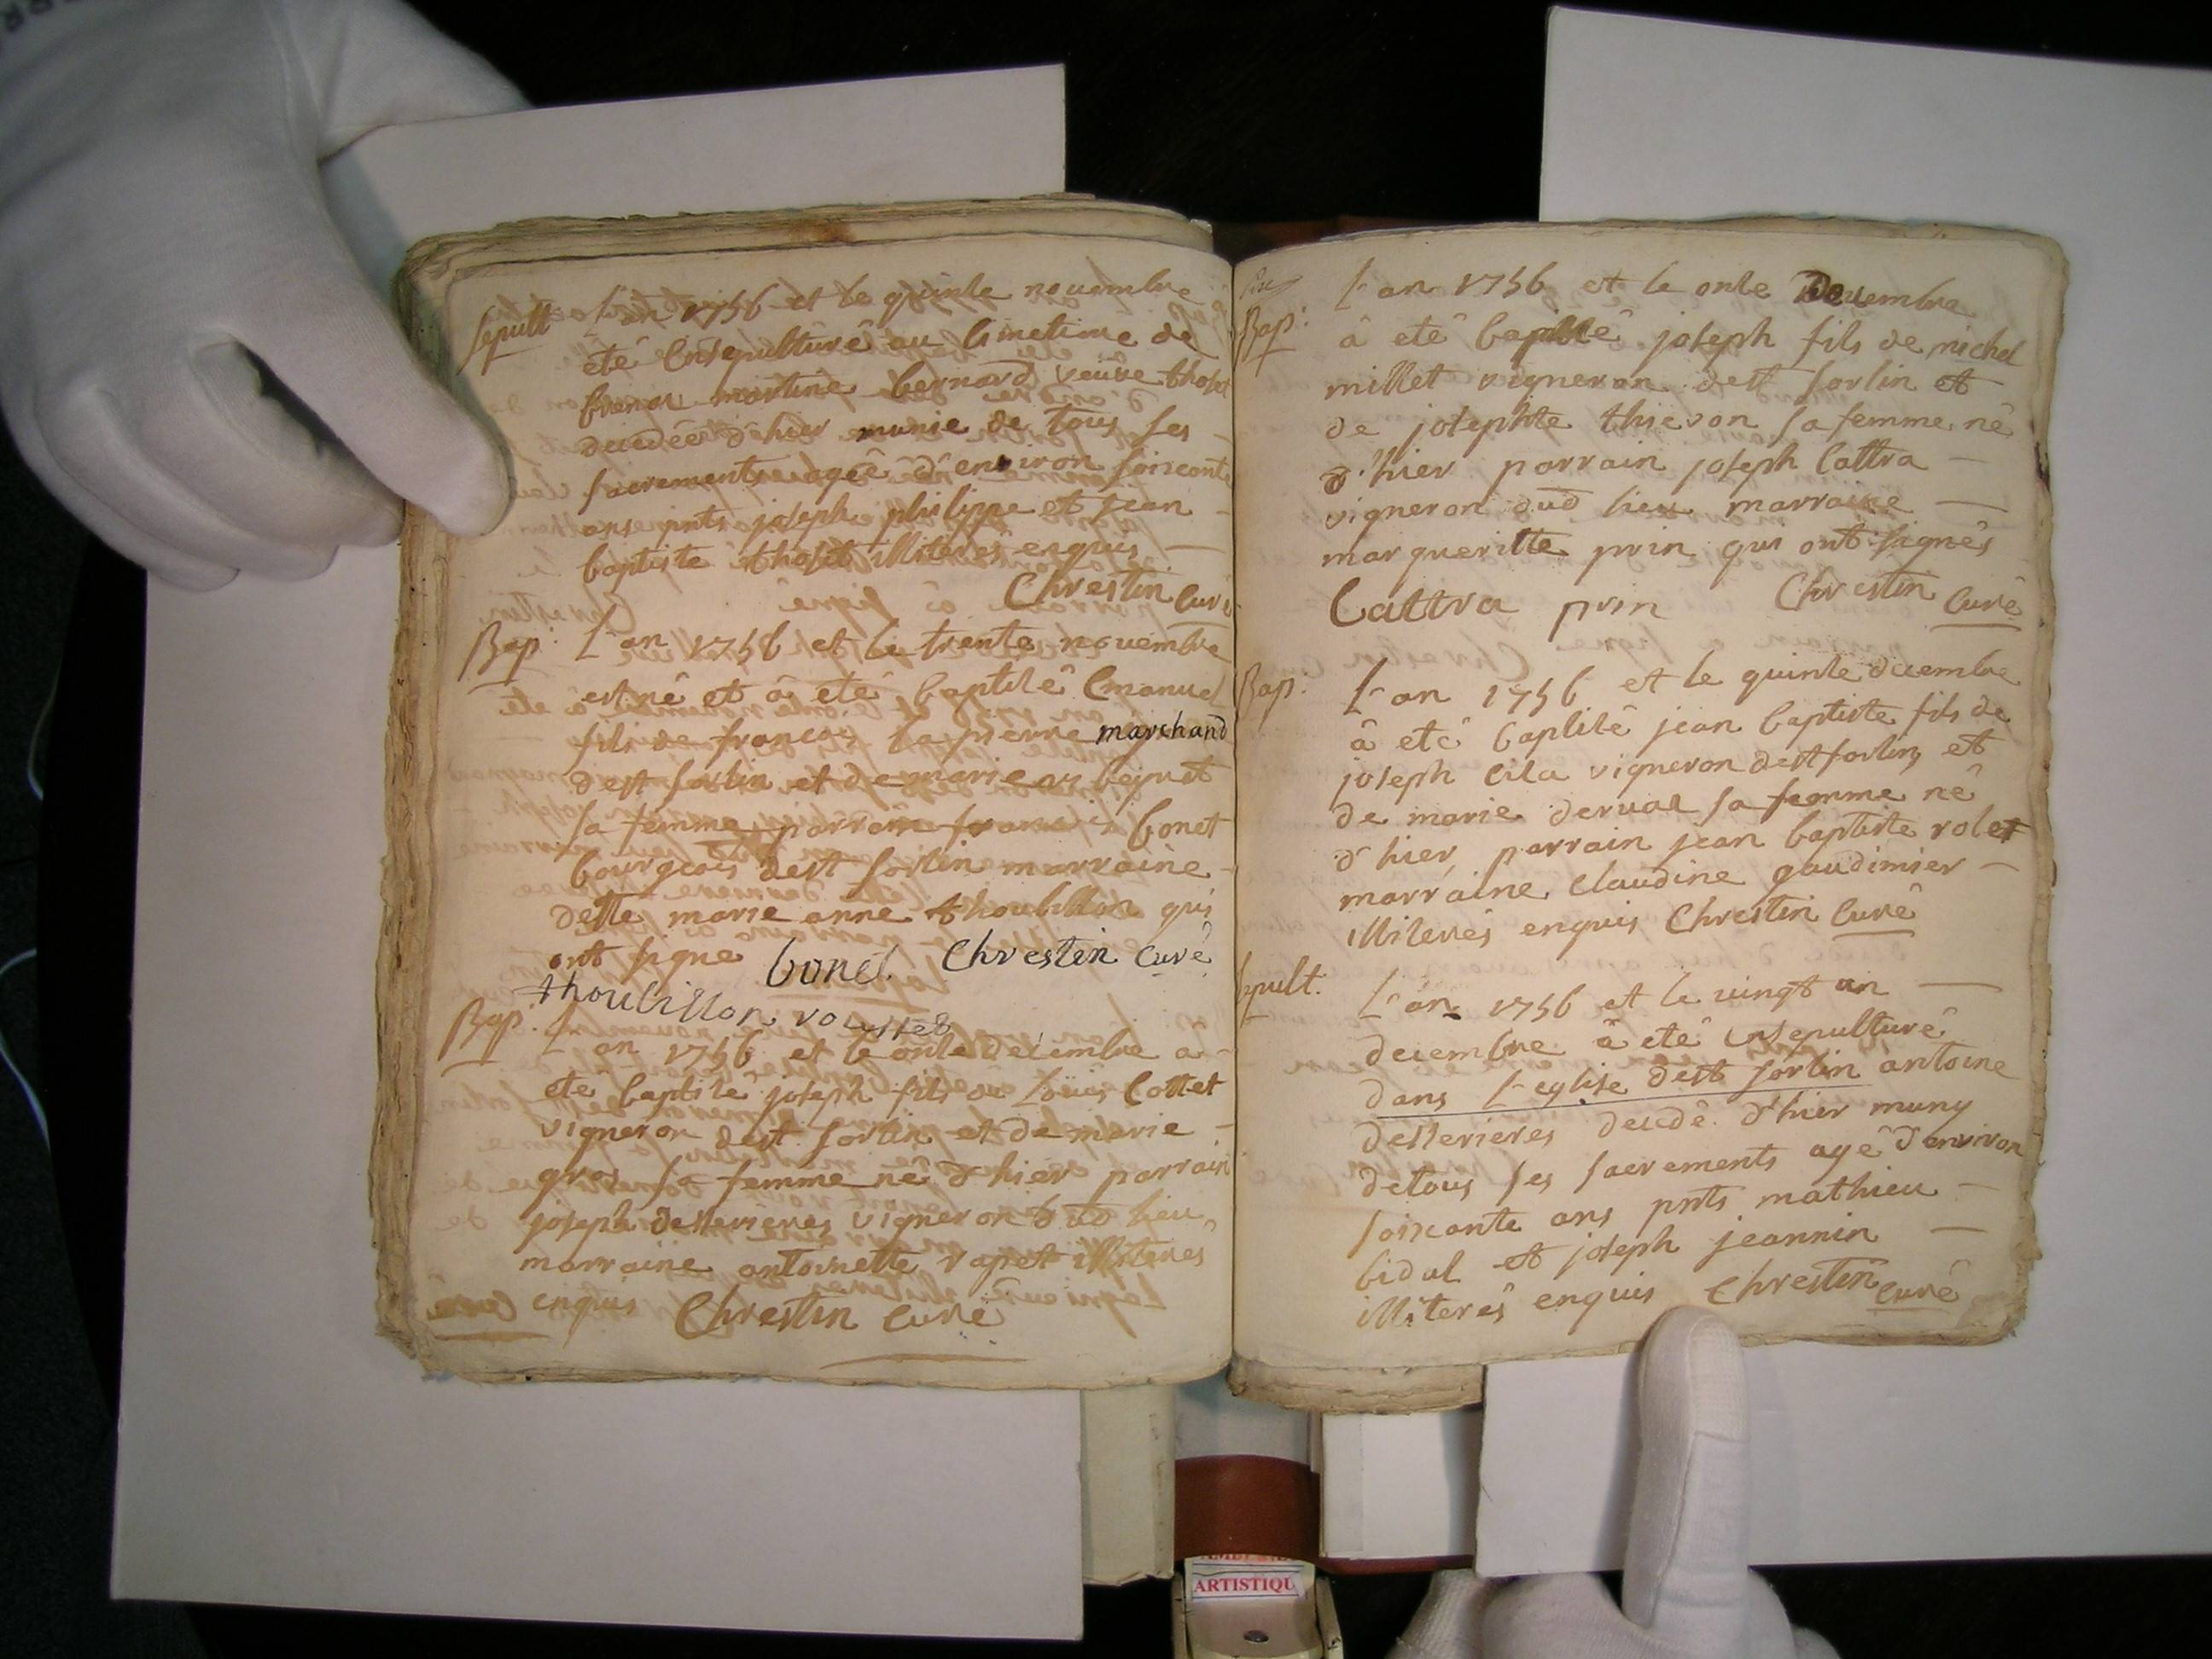 Sepult L'an 1756 et le quinze novembre
eté Ensepulturé au Cimetiere de
martine bernard veuve thoset
decedée d'hier munie de tous ses
sacrements agée d'environ soixante
ans pnts joseph philippe et jean
baptiste thoset illiterés enquis
Chrestin Curé
Bap: L'an 1756 et le trente novembre
est né et à eté baptisé Emanuel
fils de francois la pierre marchand
dest sorlin et de marie
sa femme parrain francois bonet
bourgeois dest sorlin marraine
delle marie anne thoubillon qui
ont signe bonet Chrestin Curé
thoubillon
Bap: L'an 1756 et le onze decembre a
eté baptisé joseph fils de Loüis Cottet
vigneron dest sorlin et de marie
gros sa femme né d'hier parrain
joseph desserieres vigneron dud lieu
marraine antoinette rapet illiterés
enquis Chrestin Curé
Bap: L'an 1756 et le onze Decembre
à eté baptisé joseph fils de michel
millet vigneron dest sorlin et
de josephte thievon sa femme né
d'hier parrain joseph Cattra
vigneron dud lieu marraine
margueritte prin qui ont signés
Cattra prin Chrestin Curé
Bap: L'an 1756 et le quinze decembre
à eté baptisé jean baptiste fils de
joseph Cila vigneron dest sorlin et
de marie dervae sa femme né
d'hier parrain jean baptiste rolet
marraine Claudine gaudimier
illiterés enquis Chrestin Curé
sepult: L'an 1756 et le vingt un
decembre à eté Ensepulturé
dans L'eglise dest sorlin antoine
desserieres decedé d'hier muny
detous ses sacrements agé d'environ
soixante ans pnts mathieu
bidal et joseph jeannin
illiterés enquis Chrestin Curé
ARTISTIQU